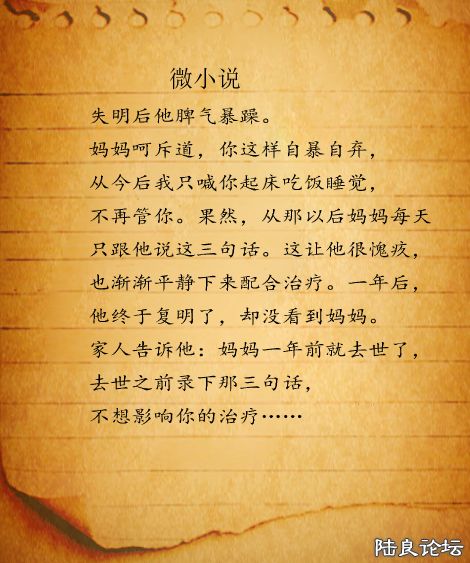 微小说
失明后他脾气暴躁。
妈妈呵斥道，你这样自暴自弃，
从今后我只喊你起床吃饭睡觉，
不再管你。果然，从那以后妈妈每天
只跟他说这三句话。这让他很愧疚，
也渐渐平静下来配合治疗。一年后，
他终于复明了，却没看到妈妈。
家人告诉他：妈妈一年前就去世了，
去世之前录下那三句话，
不想影响你的治疗……
陆良论坛